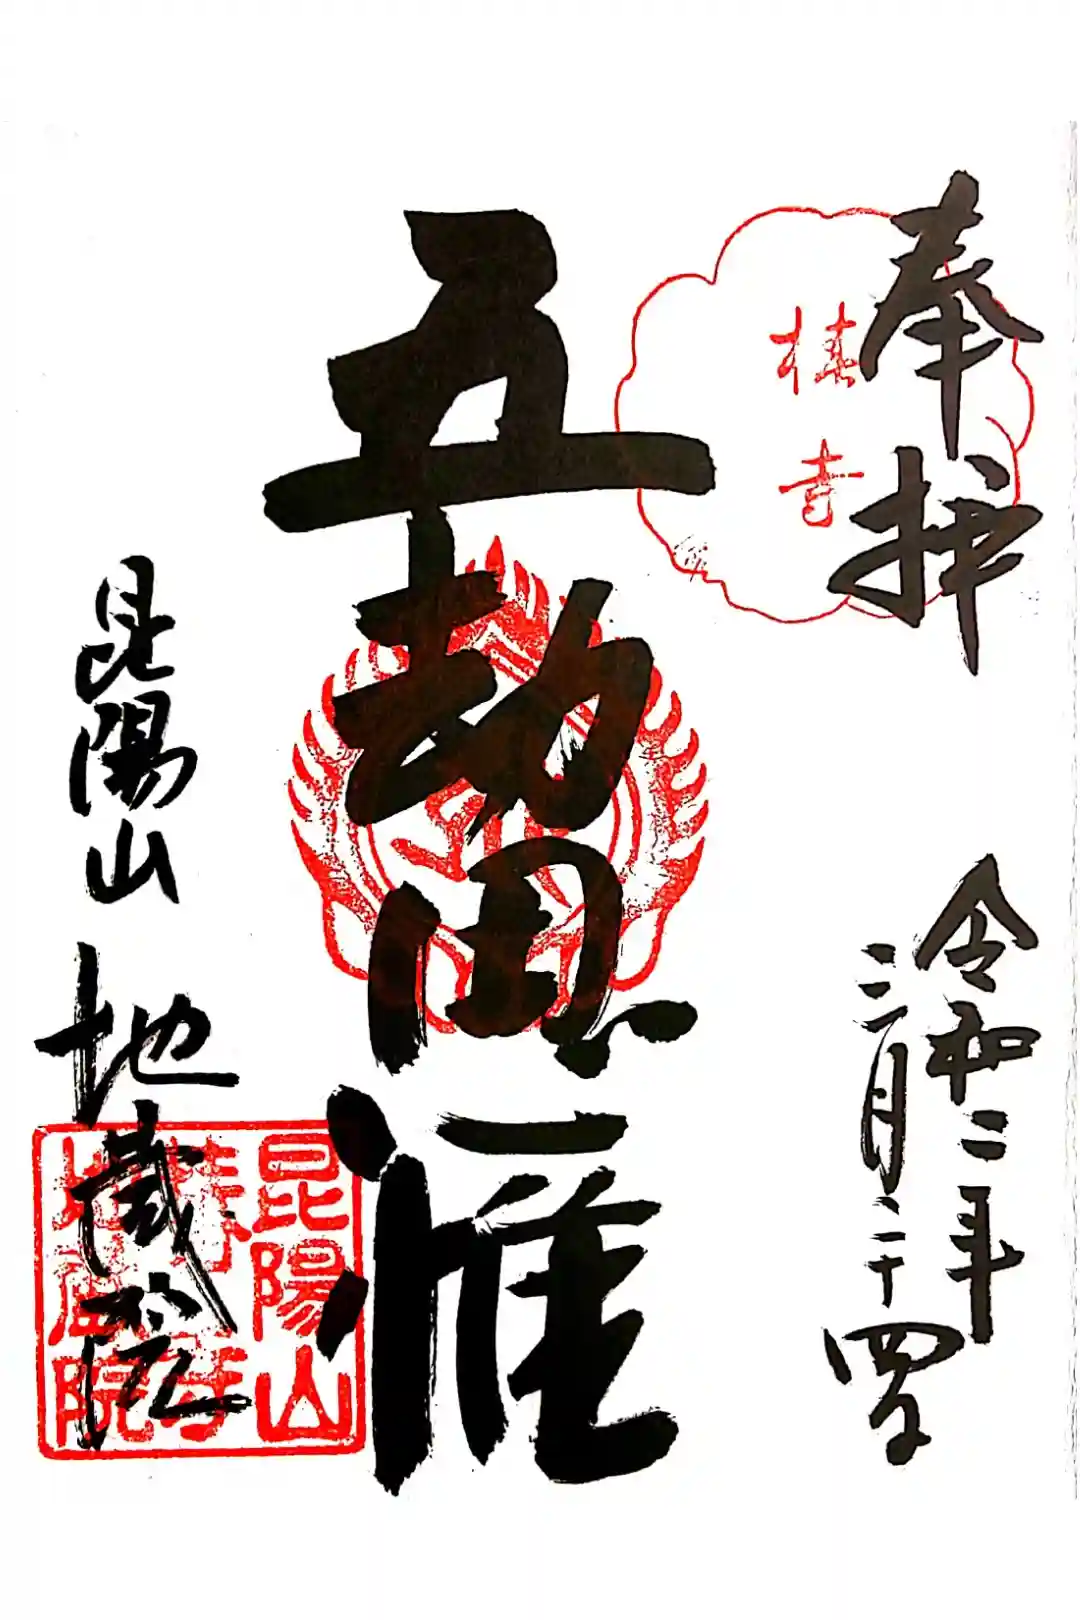 奉拝
令和二年
三月二十四日
椿寺
五劫思惟
昆陽山 地蔵院
昆陽山
椿寺
地蔵院